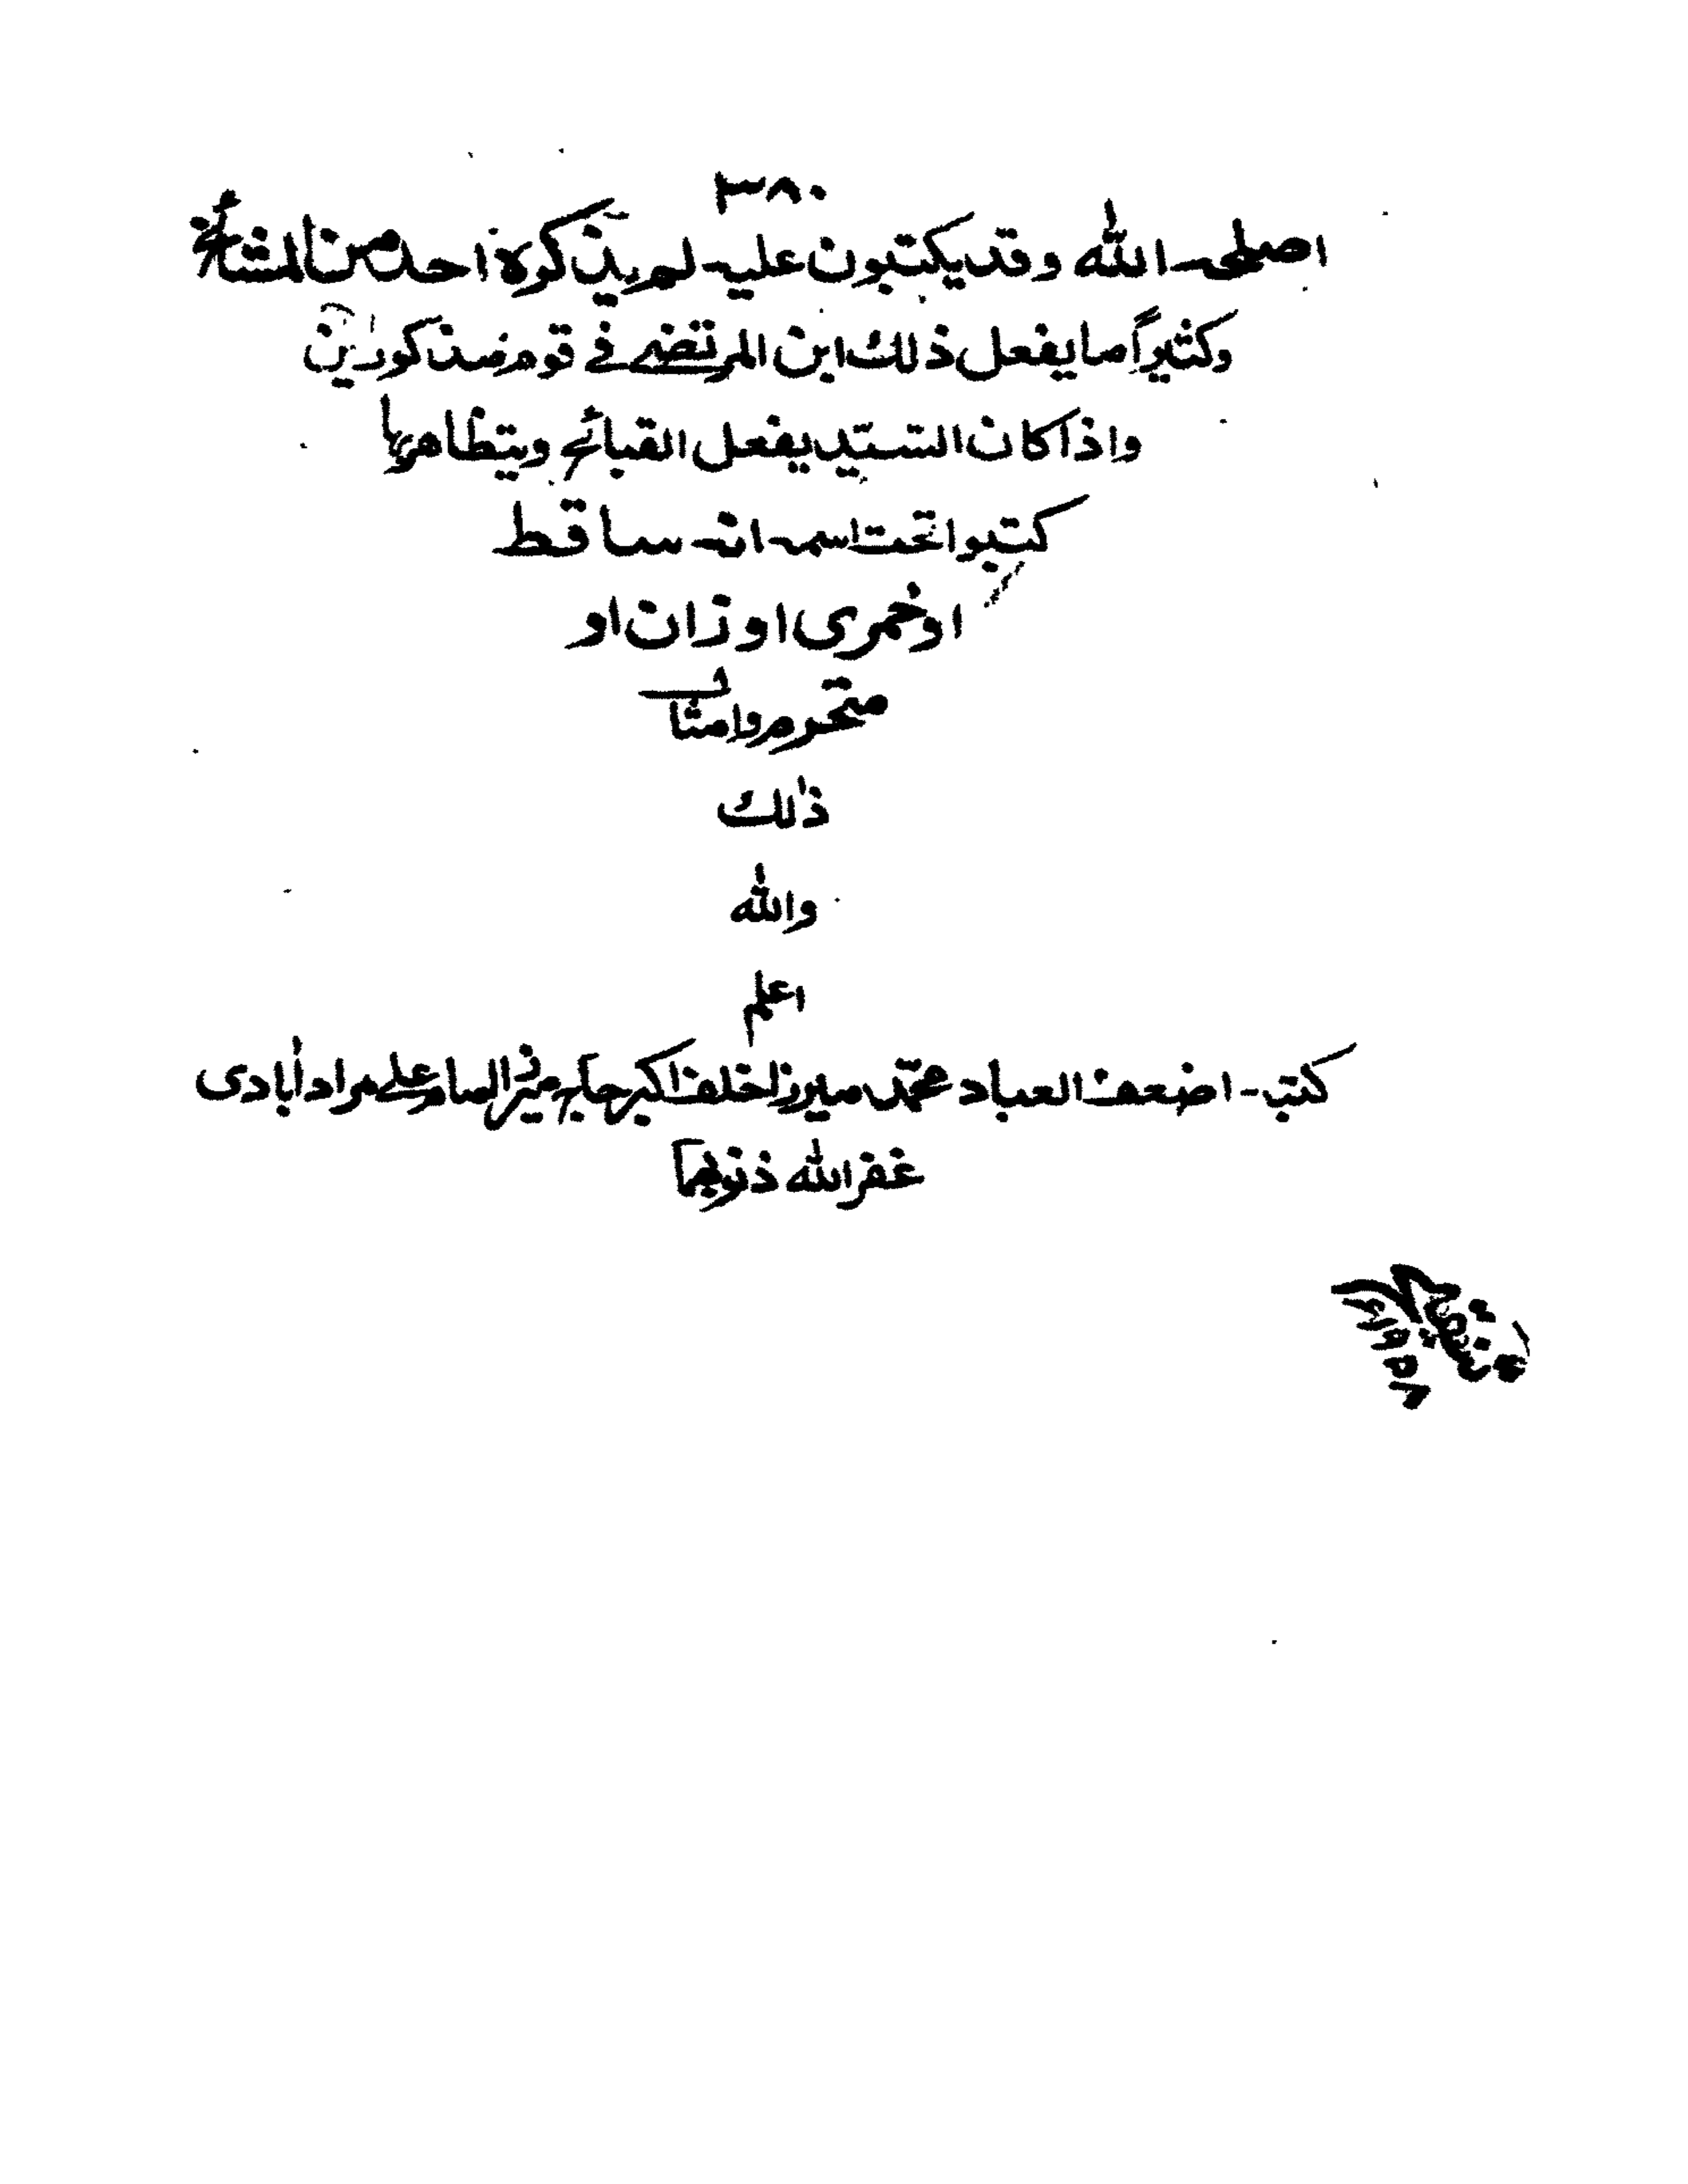 ٣٨٠
اصلحه الله وقد يكتبون عليه لم يذكره احد من المشائخ
وكثيراً ما يفعل ذلك ابن المرتضے فے قوم مذكورين
واذا كان السّيّد يفعل القبائح ويتظاهربها
كتبوا تحت اسمه انه ساقط
او خمرى او زان او
متحرم وامثال
ذلك
والله
اعلم
كتبه اضعف العباد محمّد ميرزا خلف اكبر مراداٰبادى
غفر الله ذنوبهما